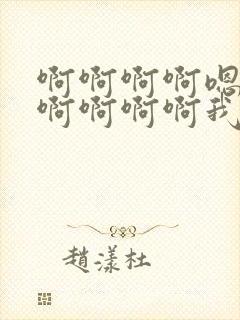 啊啊啊啊嗯
啊啊啊啊我
趙漾杜